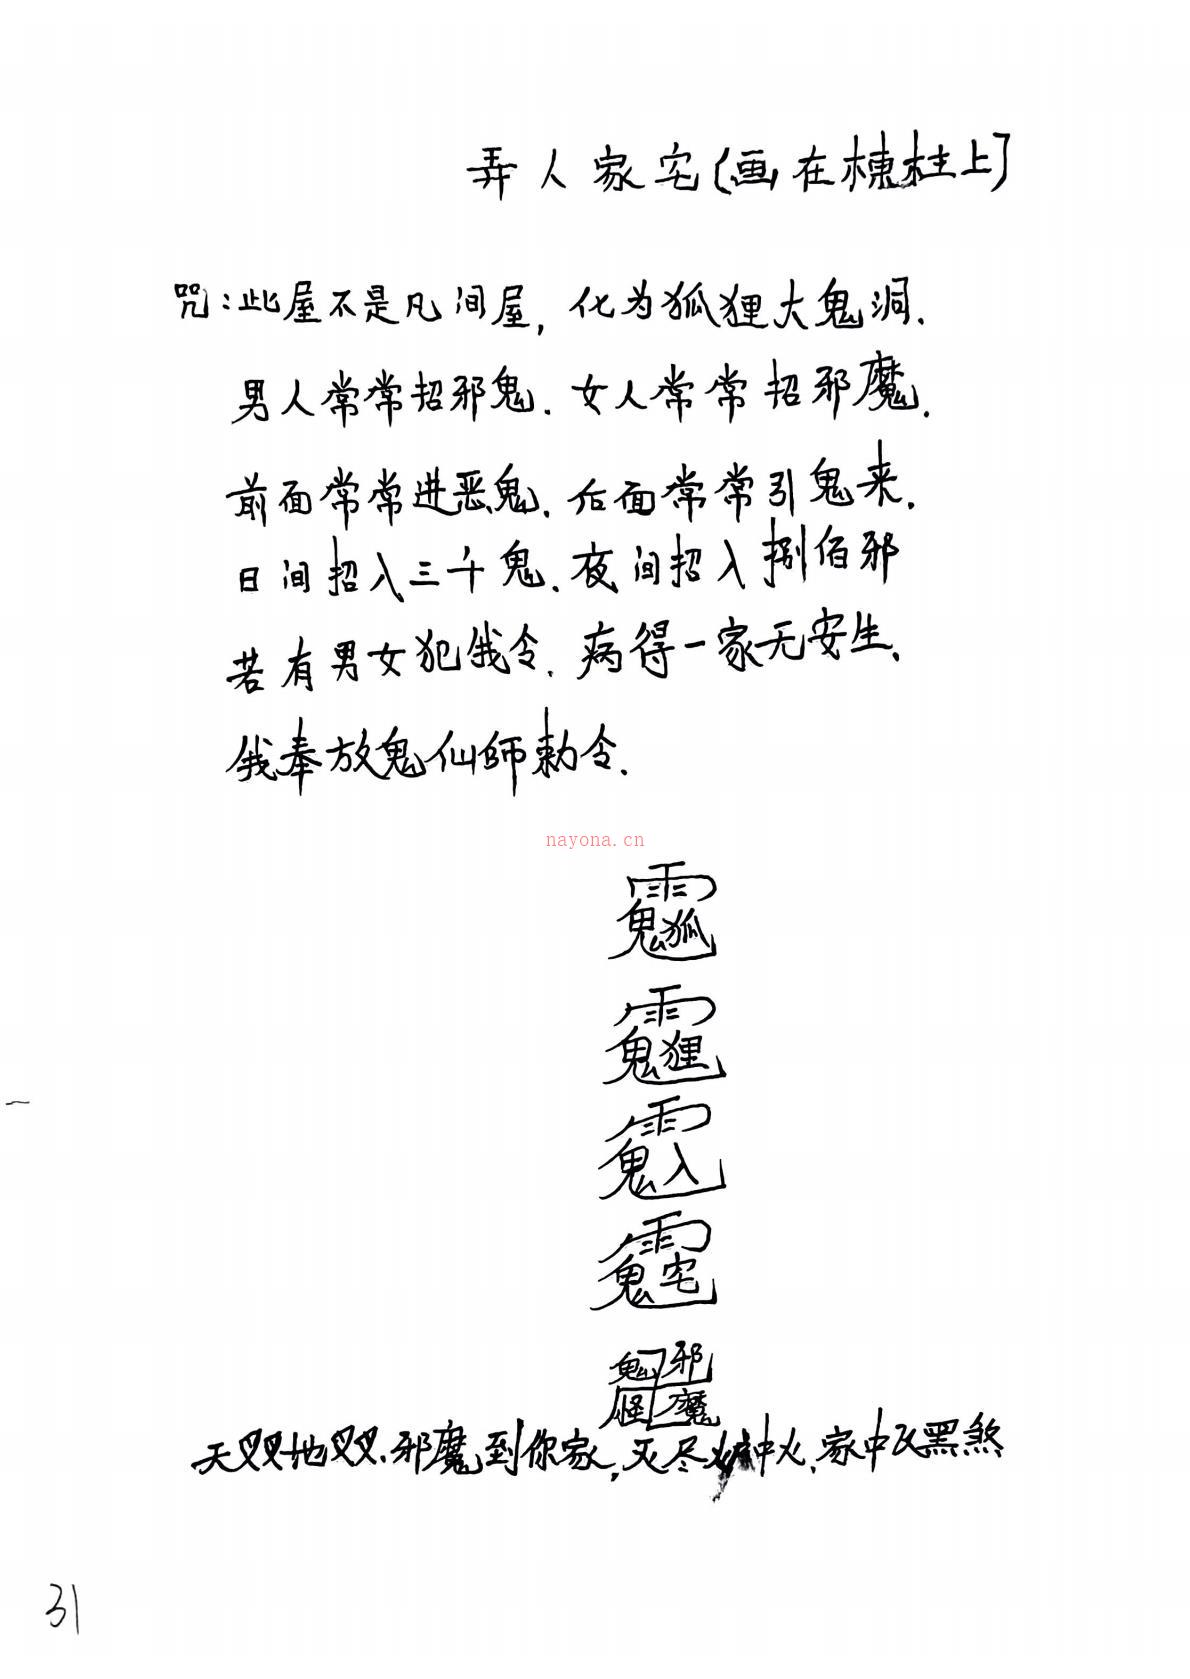 弄人家宅(画在棟柱上]
咒:此屋不是凡间屋,化为狐狸大鬼洞.
男人常常招邪鬼.女人常常招邪魔.
前面常常进恶鬼.后面常常引鬼来.
日间招入三千鬼.夜间招入捌佰邪
若有男女犯俄令.病得一家无安生.
俄奉放鬼仙師勅令.
nayona.cn
雨
鬼狐
雨
鬼狸
雨
鬼入
雨
鬼宅
鬼邪
怪魔
天叉叉地叉叉.邪魔到你家,灭尽中火.家中黑煞
31